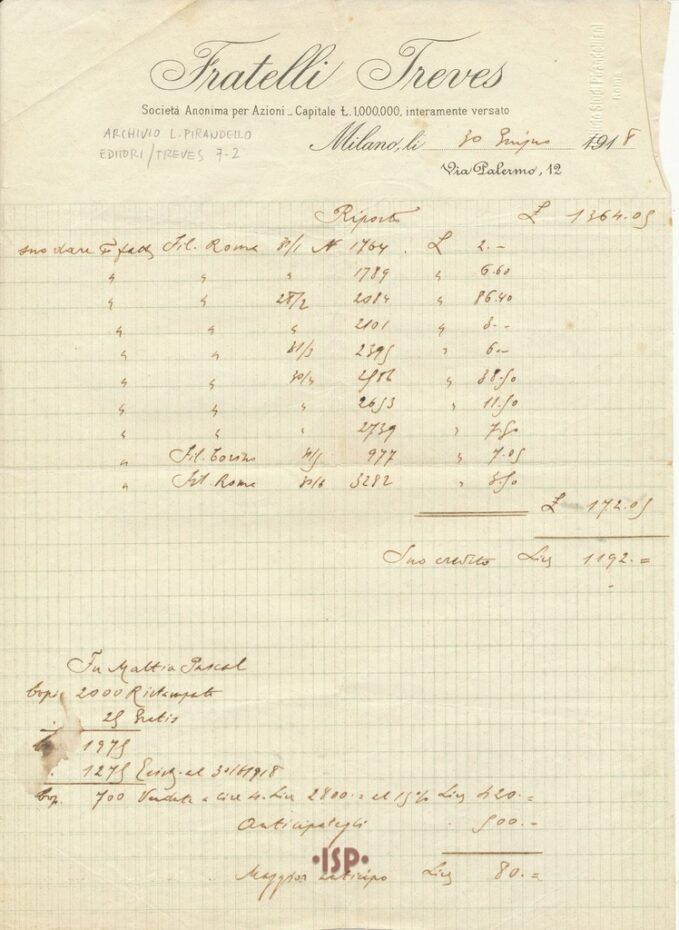 Fratelli Treves
Società Anonima per Azioni _ Capitale Ł. 1,000,000, interamente versato
ARCHIVIO L. PIRANDELLO
EDITORI/TREVES 7-2
Milano, li 30 Giugno 1918
Via Palermo, 12
Riporto £ 1364.05
suo dare Fil. Roma 31/1 N 1764 . £ 2.-
" " " 1789 " 6.60
" " 28/2 2084 " 86.40
" " " 2101 " 3.-
" " 31/3 2395 " 6.-
" " 30/4 2586 " 38.50
" " " 2653 " 11.50
" " " 2739 " 7.50
" Fil. Torino 977 " 7.05
" Fil. Roma 30/6 3282 " 3.50
£ 172.05
Suo credito Lire 1192.=
Fu Mattia Pascal
Cop. 2000 Ristampate
" 25 Gratis
1975
1275 Esist. al 30/6/1918
Cop. 700 Vendute a Lire 4. Lire 2800.= al 15% Lire 420.=
Anticipategli 500.-
Maggior anticipo Lire 80.=
•ISP•